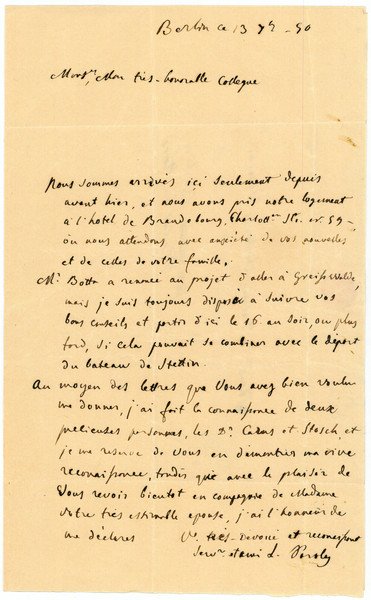 Berlin ce 13 7bre - 50
Monsr, Mon très-honorable Collegue
Nous sommes arrivés ici seulement depuis
avant hier, et nous avons pris notre logement
à l'hotel de Brandebourg, Charlotten Str. nr. 59 -
où nous attendons avec anxiété de vos nouvelles
et de celles de votre famille,
Mr. Botta a renoncé au projet d'aller à Greisswalde,
mais je suis toujours disposé à suivre vos
bons conseils et partir d'ici le 16 au soir, ou plus
tard, si cela pouvait se combiner avec le départ
du bateau de Stettin.
Au moyen des lettres que Vous avez bien voulu
me donner, j'ai fait la connaissance de deux
précieuses personnes, les Drs Carus et Stosch, et
je me reserve de Vous en demontrer ma vive
reconnaissance, tandis que avec le plaisir de
Vous revoir bientot en compagnie de Madame
votre très estimable epouse, j'ai l'honneur de
me déclarer Vre très-Devoué et reconnaissant
Servr. et ami L.